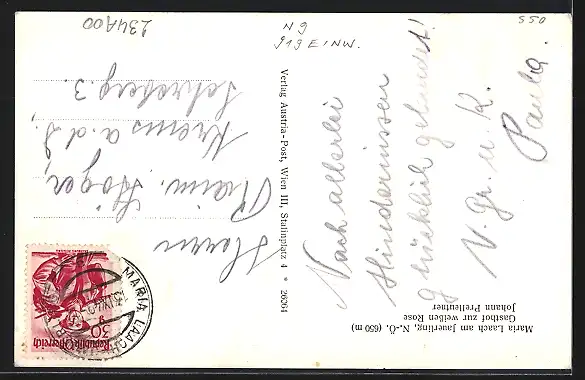 234A00
NG
919 EINW.
550
Maria Laach am Jauerling, N.-Ö. (650 m)
Gasthof zur weißen Rose
Johann Preileutner
Nach allerlei
Hindernissen
glücklich gelandet!
V. Gr. u. K.
Paula.
Verlag Austria-Post, Wien III, Stalinplatz 4 * 26064
Herrn
Höger,
Krems a. d. D.
30
Republik Österreich
MARIA LAACH